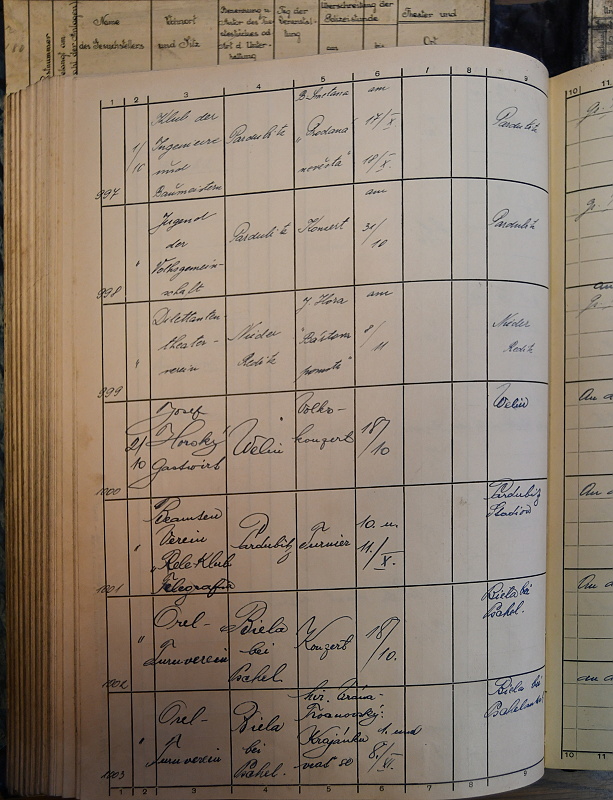 Name
des Gesuchstellers
Wohnort
und Sitz
Benennung u.
Autor des The-
aterstückes od.
Art d. Unter-
haltung
Tag der
Veranstal-
tung
Überschreitung der
Polizeistunde
am
bis
Theater und
Ort
1 2 3 4 5 6 7 8 9
10 11
997
1/10
Klub der
Ingenieure
und
Baumeistern
Pardubitz
B. Smetana
„Prodaná
nevěsta"
am
17/X.
18/X.
Pardubitz
998
"
Jugend
der
Volksgemein-
schaft
Pardubitz
Konzert
am
31/10
Pardubitz
999
"
Dilettanten-
theater-
verein
Nieder
Reditz
J. Hora
am
8/11
Nieder
Reditz
1000
2/10
Josef
Horský
Gastwirt
Welin
Volks-
konzert
18/10
Welin
An d
1001
"
Beamten
Verein
Klub
Telegrafia
Pardubitz
Turnier
10. u.
11./X.
Pardubitz
Stadion
An d
1002
"
Orel-
Turnverein
Biela
bei
Pschel.
Konzert
18/10.
Biela bei
Pschel.
An d
1003
"
Orel-
Turnverein
Biela
bei
Pschel.
1. und
8./XI.
Biela bei
an d
1 2 3 4 5 6 7 8 9
10 11